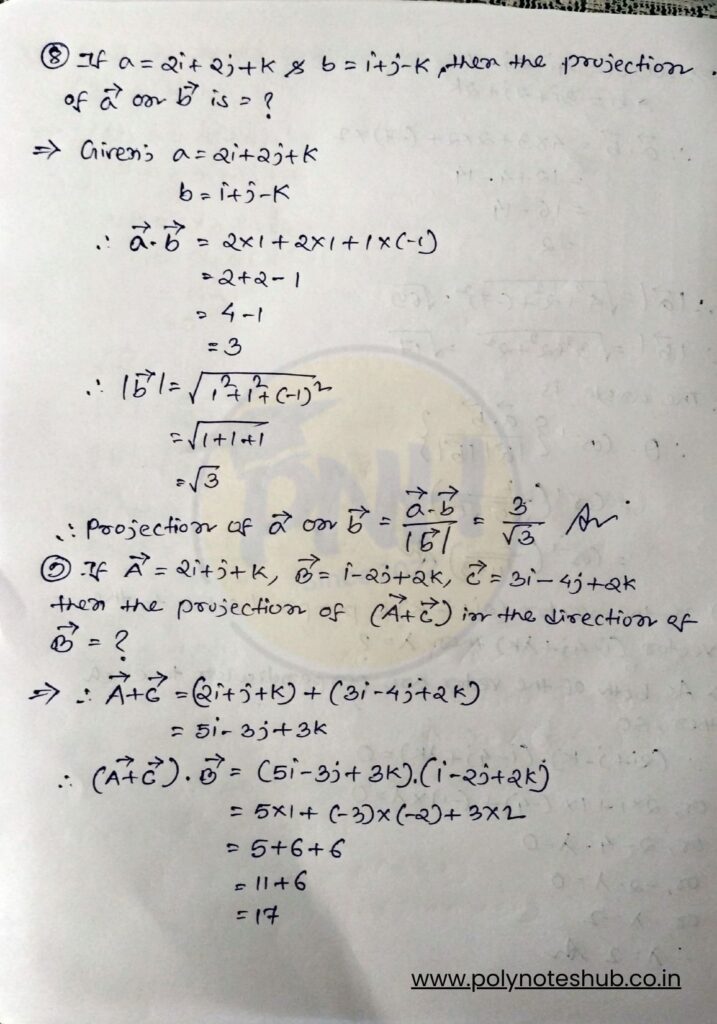 ⑧ If a = 2i + 2j + k & b = i+j-k, then the projection
of a⃗ on b⃗ is = ?
⇒ Given; a = 2i+2j+k
b = i+j-k
∴ a⃗·b⃗ = 2×1 + 2×1 + 1×(-1)
= 2+2-1
= 4-1
= 3
∴ |b⃗| = √(1²+1²+(-1)²)
= √(1+1+1)
= √3
∴ Projection of a⃗ on b⃗ = a⃗·b⃗/|b⃗| = 3/√3 Ans
⑨ If A⃗ = 2i+j+k, B⃗ = i-2j+2k, C⃗ = 3i-4j+2k
then the projection of (A⃗+C⃗) in the direction of
B⃗ = ?
⇒ ∴ A⃗+C⃗ = (2i+j+k) + (3i-4j+2k)
= 5i-3j+3k
∴ (A⃗+C⃗)·B⃗ = (5i-3j+3k).(i-2j+2k)
= 5×1 + (-3)×(-2) + 3×2
= 5+6+6
= 11+6
= 17
www.polynoteshub.co.in